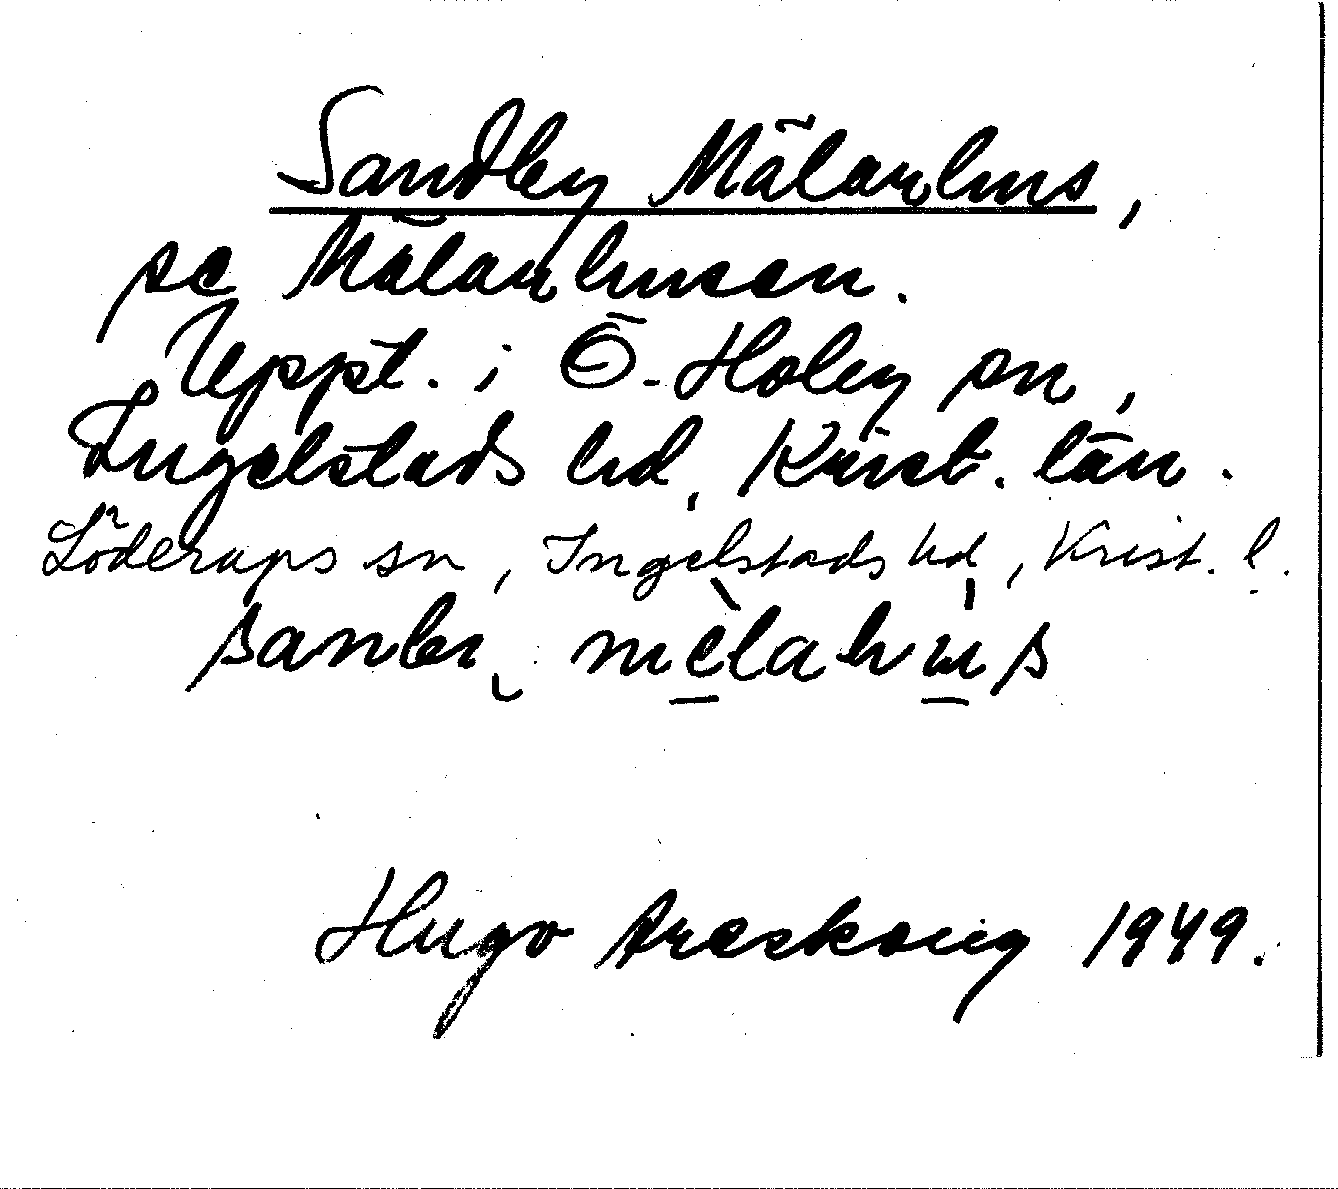 Sandby Mälarhus,
se Mälarhusen.
Uppt. i Ö. Hoby sn,
Ingelstads hd, Krist. län.
Löderups sn, Ingelstads hd, Krist. l.
sanbi mèlahús
Hugo Areskoug 1949.